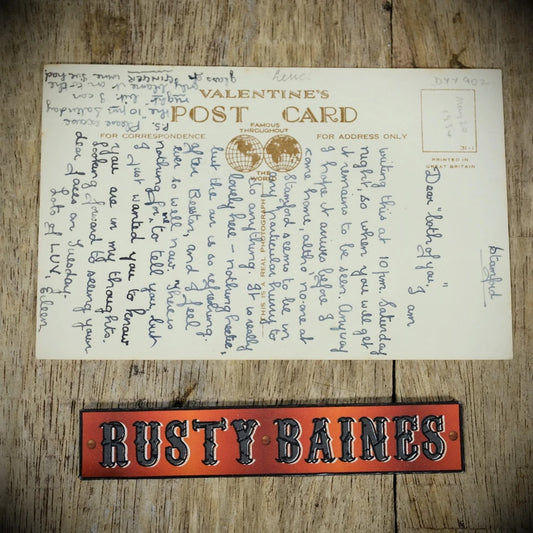 Lena
DYY 902
VALENTINE'S
POST CARD
FAMOUS THROUGHOUT THE WORLD
FOR CORRESPONDENCE
FOR ADDRESS ONLY
PRINTED IN
GREAT BRITAIN
THIS IS A REAL PHOTOGRAPH
Stamford
Dear "both of you,"
I am
writing this at 10 pm Saturday
night, so when you will get
it remains to be seen. Anyway
I hope it arrives before I
come home, altho no-one at
Stamford seems to be in
any particular hurry to
do anything. It is really
lovely here - nothing hectic,
but the air is so refreshing
after Beeston, and I feel
ever so well now. There is
nothing for me to tell you but
I just wanted you to know
you are in my thoughts.
Looking forward to seeing your
dear faces on Tuesday,
Lots of LUV, Eileen
PS. Please excuse
the 10 pm Saturday
night bit. I can
only blame it on the
glass of GINGER wine I've had
RUSTY BAINES